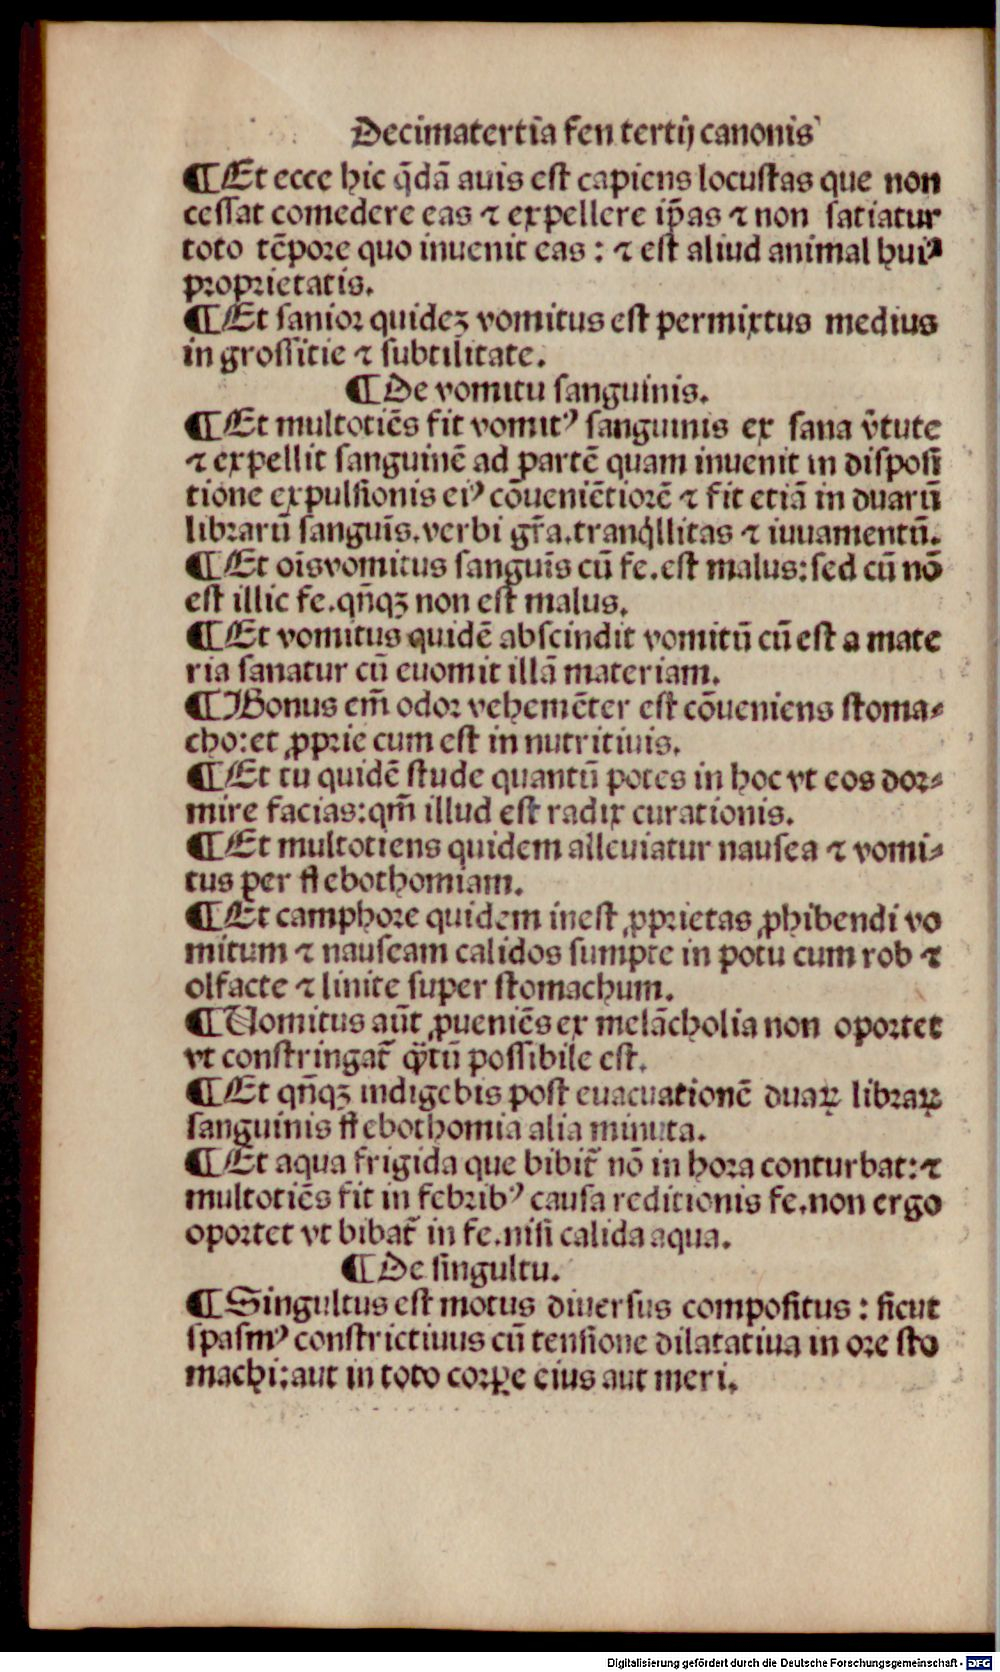 Decimatertia fen tertij canonis
¶Et ecce hic q̄dā auis est capiens locustas que non
cessat comedere eas ⁊ expellere ip̄as ⁊ non satiatur
toto tēpore quo inuenit eas: ⁊ est aliud animal huiꝰ
proprietatis.
¶Et sanior quideꝫ vomitus est permixtus medius
in grossitie ⁊ subtilitate.
¶De vomitu sanguinis.
¶Et multotiēs fit vomitꝰ sanguinis ex sana v̄tute
⁊ expellit sanguinē ad partē quam inuenit in disposi
tione expulsionis eiꝰ cōueniētiorē ⁊ fit etiā in duarū
librarū sanguīs.verbi gr̄a.tranq̇llitas ⁊ iuuamentū.
¶Et oīsvomitus sanguīs cū fe.est malus:sed cū nō
est illic fe.qn̄qꝫ non est malus.
¶Et vomitus quidē abscindit vomitū cū est a mate
ria sanatur cū euomit illā materiam.
¶Bonus em̄ odor vehemēter est cōueniens stoma⸗
cho:et ꝓprie cum est in nutritiuis.
¶Et tu quidē stude quantū potes in hoc vt eos dor⸗
mire facias:qm̄ illud est radix curationis.
¶Et multotiens quidem alleuiatur nausea ⁊ vomi⸗
tus per flebothomiam.
¶Et camphore quidem inest ꝓprietas ꝓhibendi vo
mitum ⁊ nauseam calidos sumpte in potu cum rob ⁊
olfacte ⁊ linite super stomachum.
¶Uomitus aūt ꝓueniēs ex melācholia non oportet
vt constringat̄ q̄ꝫtū possibile est.
¶Et qn̄qꝫ indigebis post euacuationē duaꝝ libraꝝ
sanguinis flebothomia alia minuta.
¶Et aqua frigida que bibit̄ nō in hora conturbat:⁊
multotiēs fit in febribꝰ causa reditionis fe.non ergo
oportet vt bibat̄ in fe.nisi calida aqua.
¶De singultu.
¶Singultus est motus diuersus compositus: sicut
spasmꝰ constrictiuus cū tensione dilatatiua in ore sto
machi:aut in toto corꝑe eius aut meri.
Digitalisierung gefördert durch die Deutsche Forschungsgemeinschaft - DFG